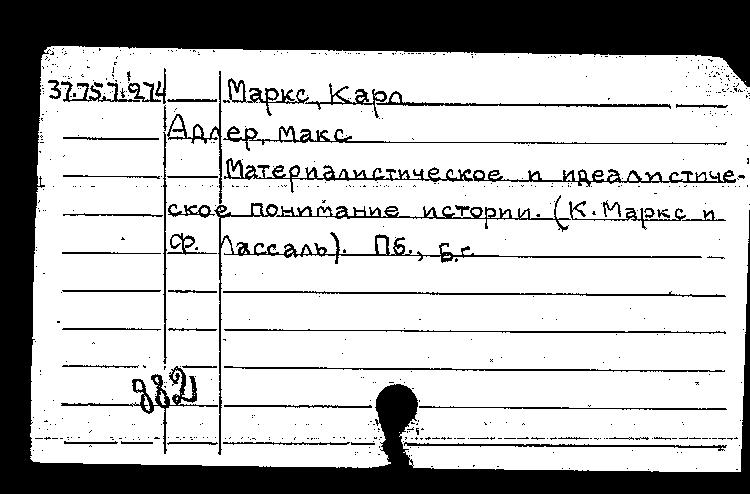 37.75.7.974 Маркс, Карл
Адлер, Макс
Материалистическое и идеалистиче-
ское понимание истории. (К. Маркс и
Ф. Лассаль). Пб., Б.г.
982